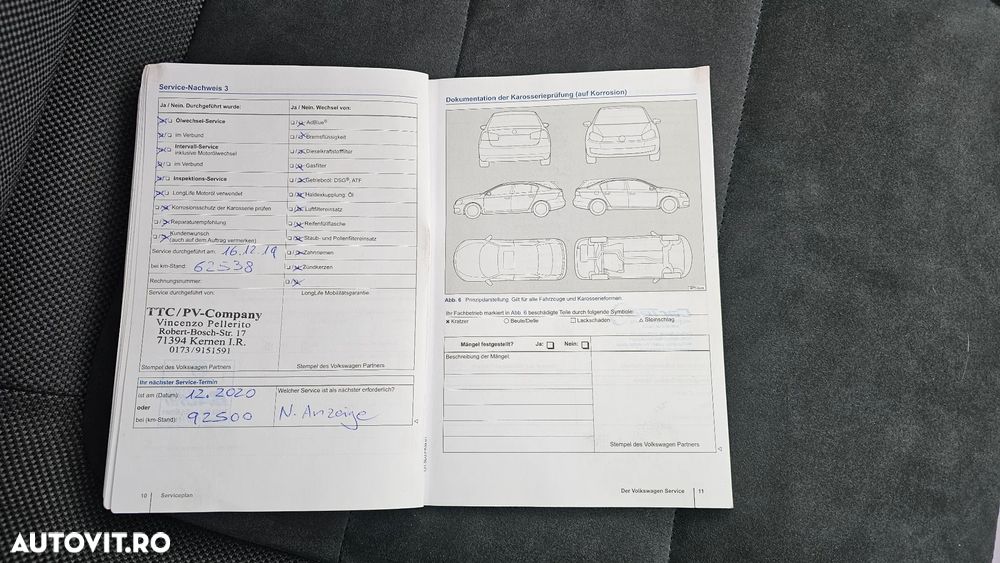 Service-Nachweis 3
Ja / Nein. Durchgeführt wurde:
Ja / Nein. Wechsel von:
Ölwechsel-Service
AdBlue®
im Verbund
Bremsflüssigkeit
Intervall-Service
inklusive Motorölwechsel
Dieselkraftstofffilter
im Verbund
Gasfilter
Inspektions-Service
Getriebeöl: DSG®, ATF
LongLife Motoröl verwendet
Haldexkupplung: Öl
Korrosionsschutz der Karosserie prüfen
Luftfiltereinsatz
Reparaturempfehlung
Reifenfüllflasche
Kundenwunsch
(auch auf dem Auftrag vermerken)
Staub- und Pollenfiltereinsatz
Service durchgeführt am: 16.12.19
Zahnriemen
bei km-Stand: 62538
Zündkerzen
Rechnungsnummer:
Service durchgeführt von:
LongLife Mobilitätsgarantie
TTC/PV-Company
Vincenzo Pellerito
Robert-Bosch-Str. 17
71394 Kernen I.R.
0173/9151591
Stempel des Volkswagen Partners
Stempel des Volkswagen Partners
Ihr nächster Service-Termin
ist am (Datum): 12.2020
Welcher Service ist als nächster erforderlich?
oder
bei (km-Stand): 92500
N. Anzeige
10
Serviceplan
Dokumentation der Karosserieprüfung (auf Korrosion)
Abb. 6 Prinzipdarstellung: Gilt für alle Fahrzeuge und Karosserieformen.
Ihr Fachbetrieb markiert in Abb. 6 beschädigte Teile durch folgende Symbole:
x Kratzer
○ Beule/Delle
□ Lackschaden
△ Steinschlag
Mängel festgestellt? Ja: Nein:
Beschreibung der Mängel:
Stempel des Volkswagen Partners
Der Volkswagen Service
11
AUTOVIT.RO